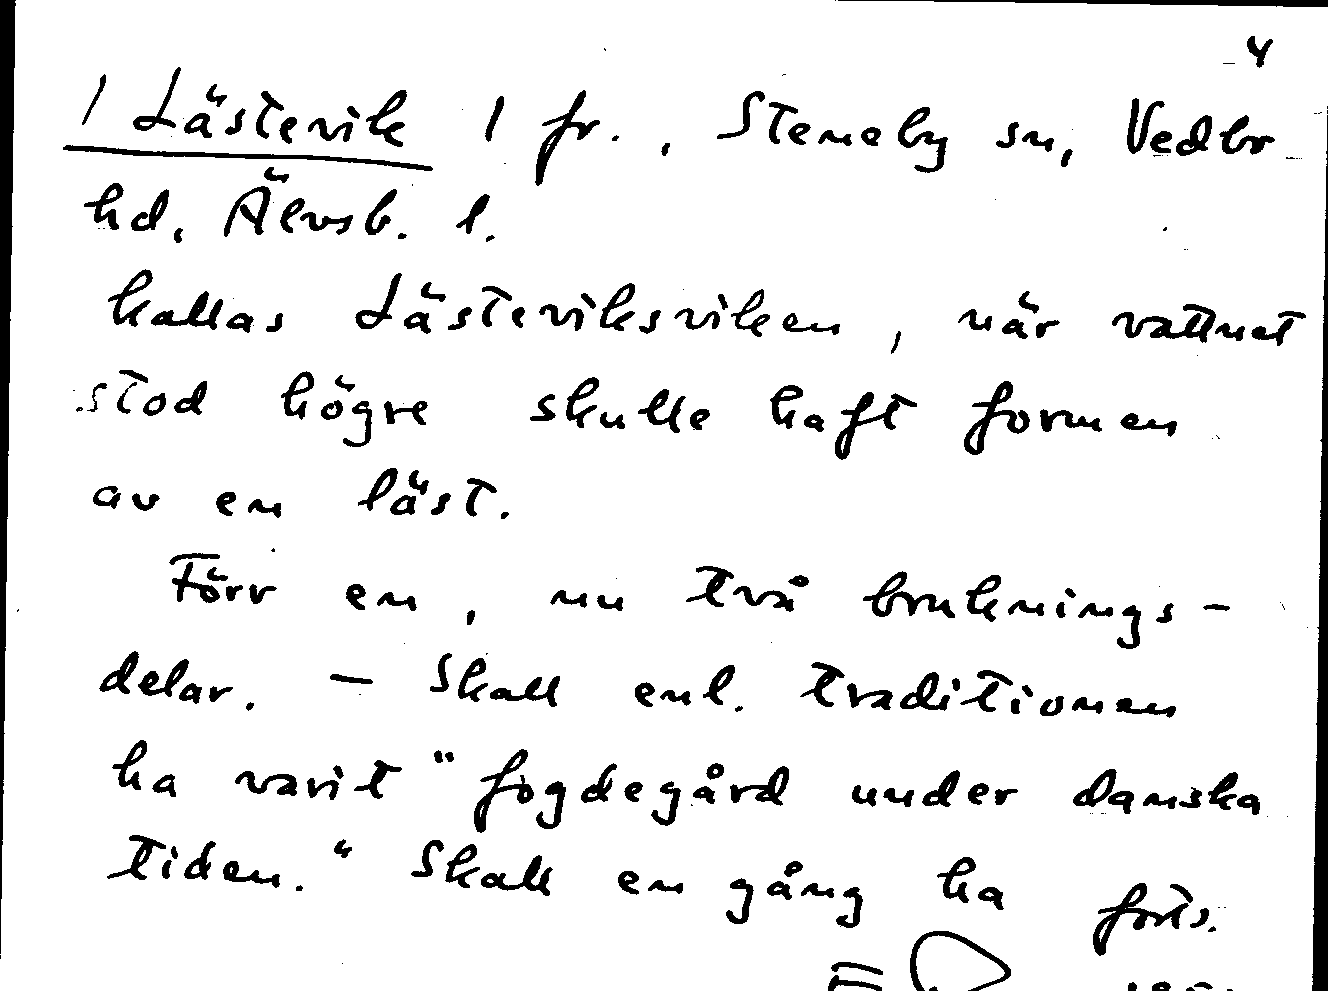 4
1 Lästevik 1 fr., Steneby sn, Vedbo
hd, Älvsb. l.
kallas Lästeviksviken, när vattnet
stod högre skulle haft formen
av en läst.
Förr en, nu två bruknings-
delar. – Skall enl. traditionen
ha varit "fogdegård under danska
tiden." Skall en gång ha forts.